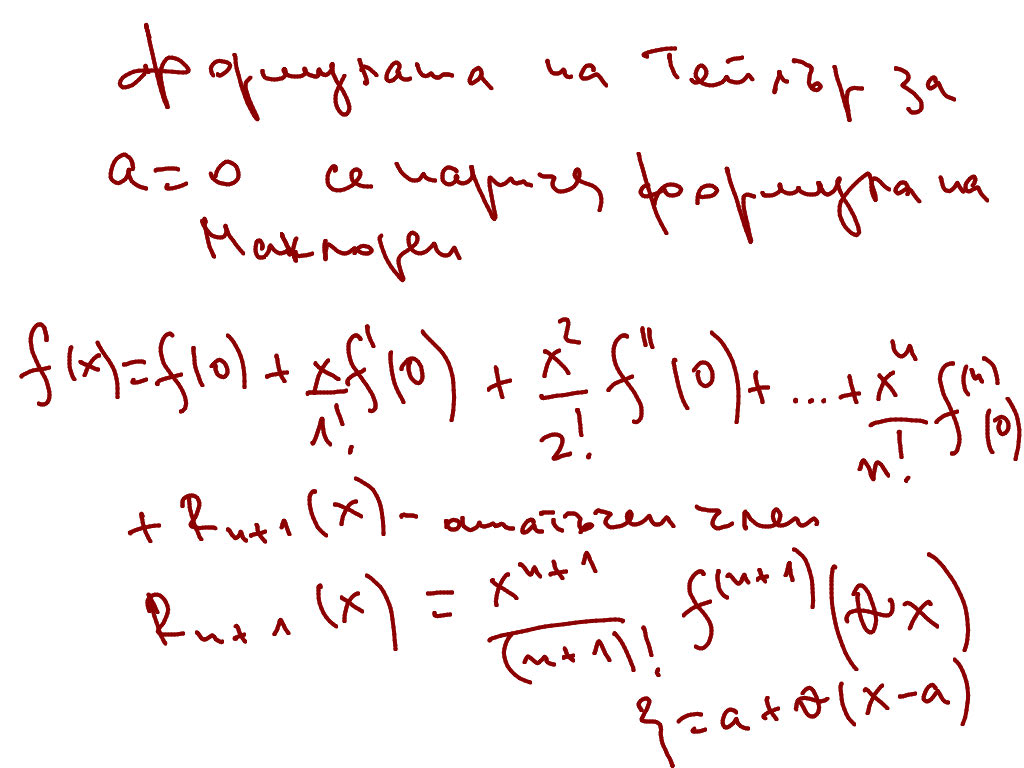 формулата на Тейлър за
a = 0 се нарича формула на
Маклорен
f(x) = f(0) + x/1! f'(0) + x²/2! f''(0) + ... + xⁿ/n! f⁽ⁿ⁾(0)
+ Rₙ₊₁(x) - остатъчен член
Rₙ₊₁(x) = xⁿ⁺¹/(n+1)! f⁽ⁿ⁺¹⁾(θx)
ξ = a + θ(x-a)